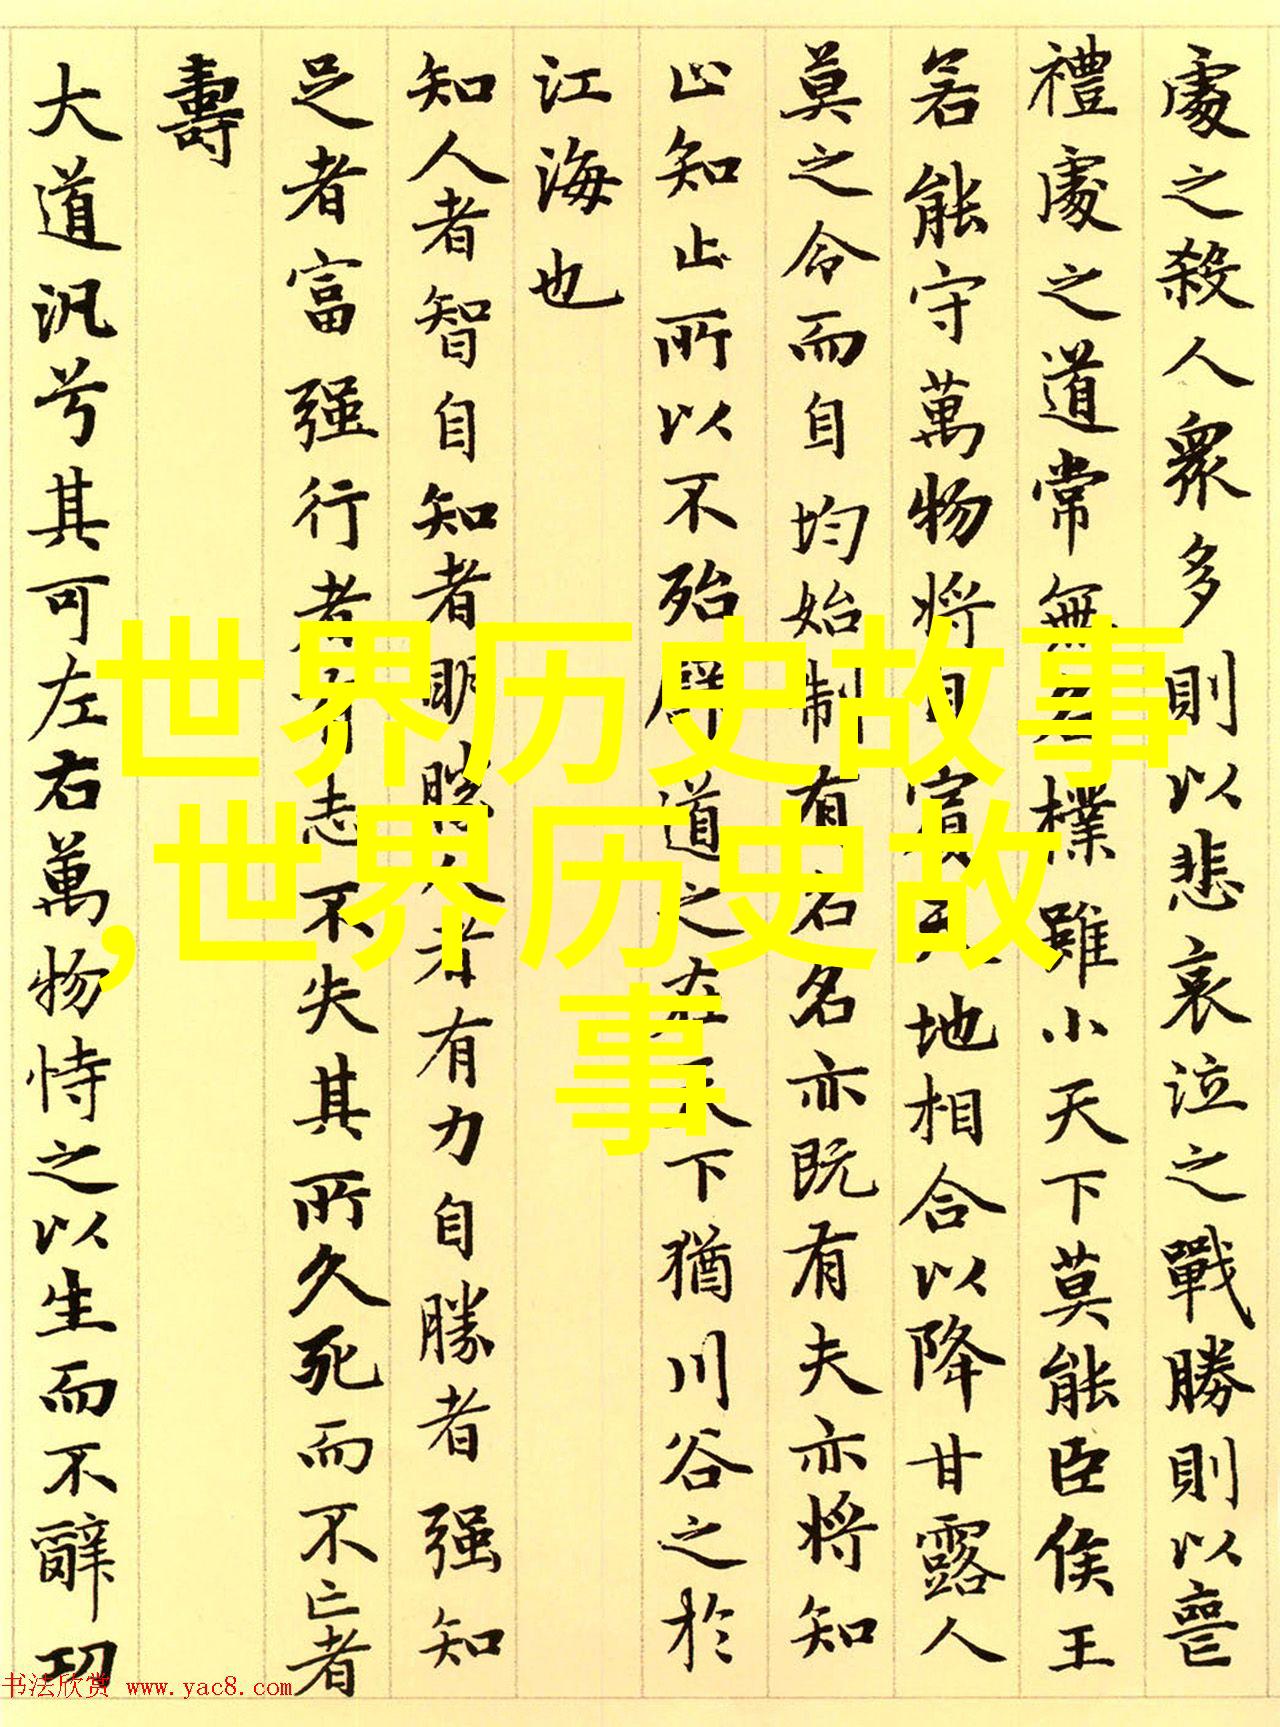 處之殺人眾多則以悲哀泣之戰勝則以喪
禮處之道常無名樸雖小天下莫能臣侯王
若能守萬物將自賓天地相合以降甘露人
莫之令而自均始制有名名亦既有夫亦將知
止知止所以不殆譬道之在天下猶川谷之於
江海也
知人者智自知者明勝人者有力自勝者强知
足者富强行者有志不失其所久死而不亡者
壽
大道汎兮其可左右萬物恃之以生而不辭功
世界历史故事
,世界历史故
事
书法欣赏 www.yac8.com